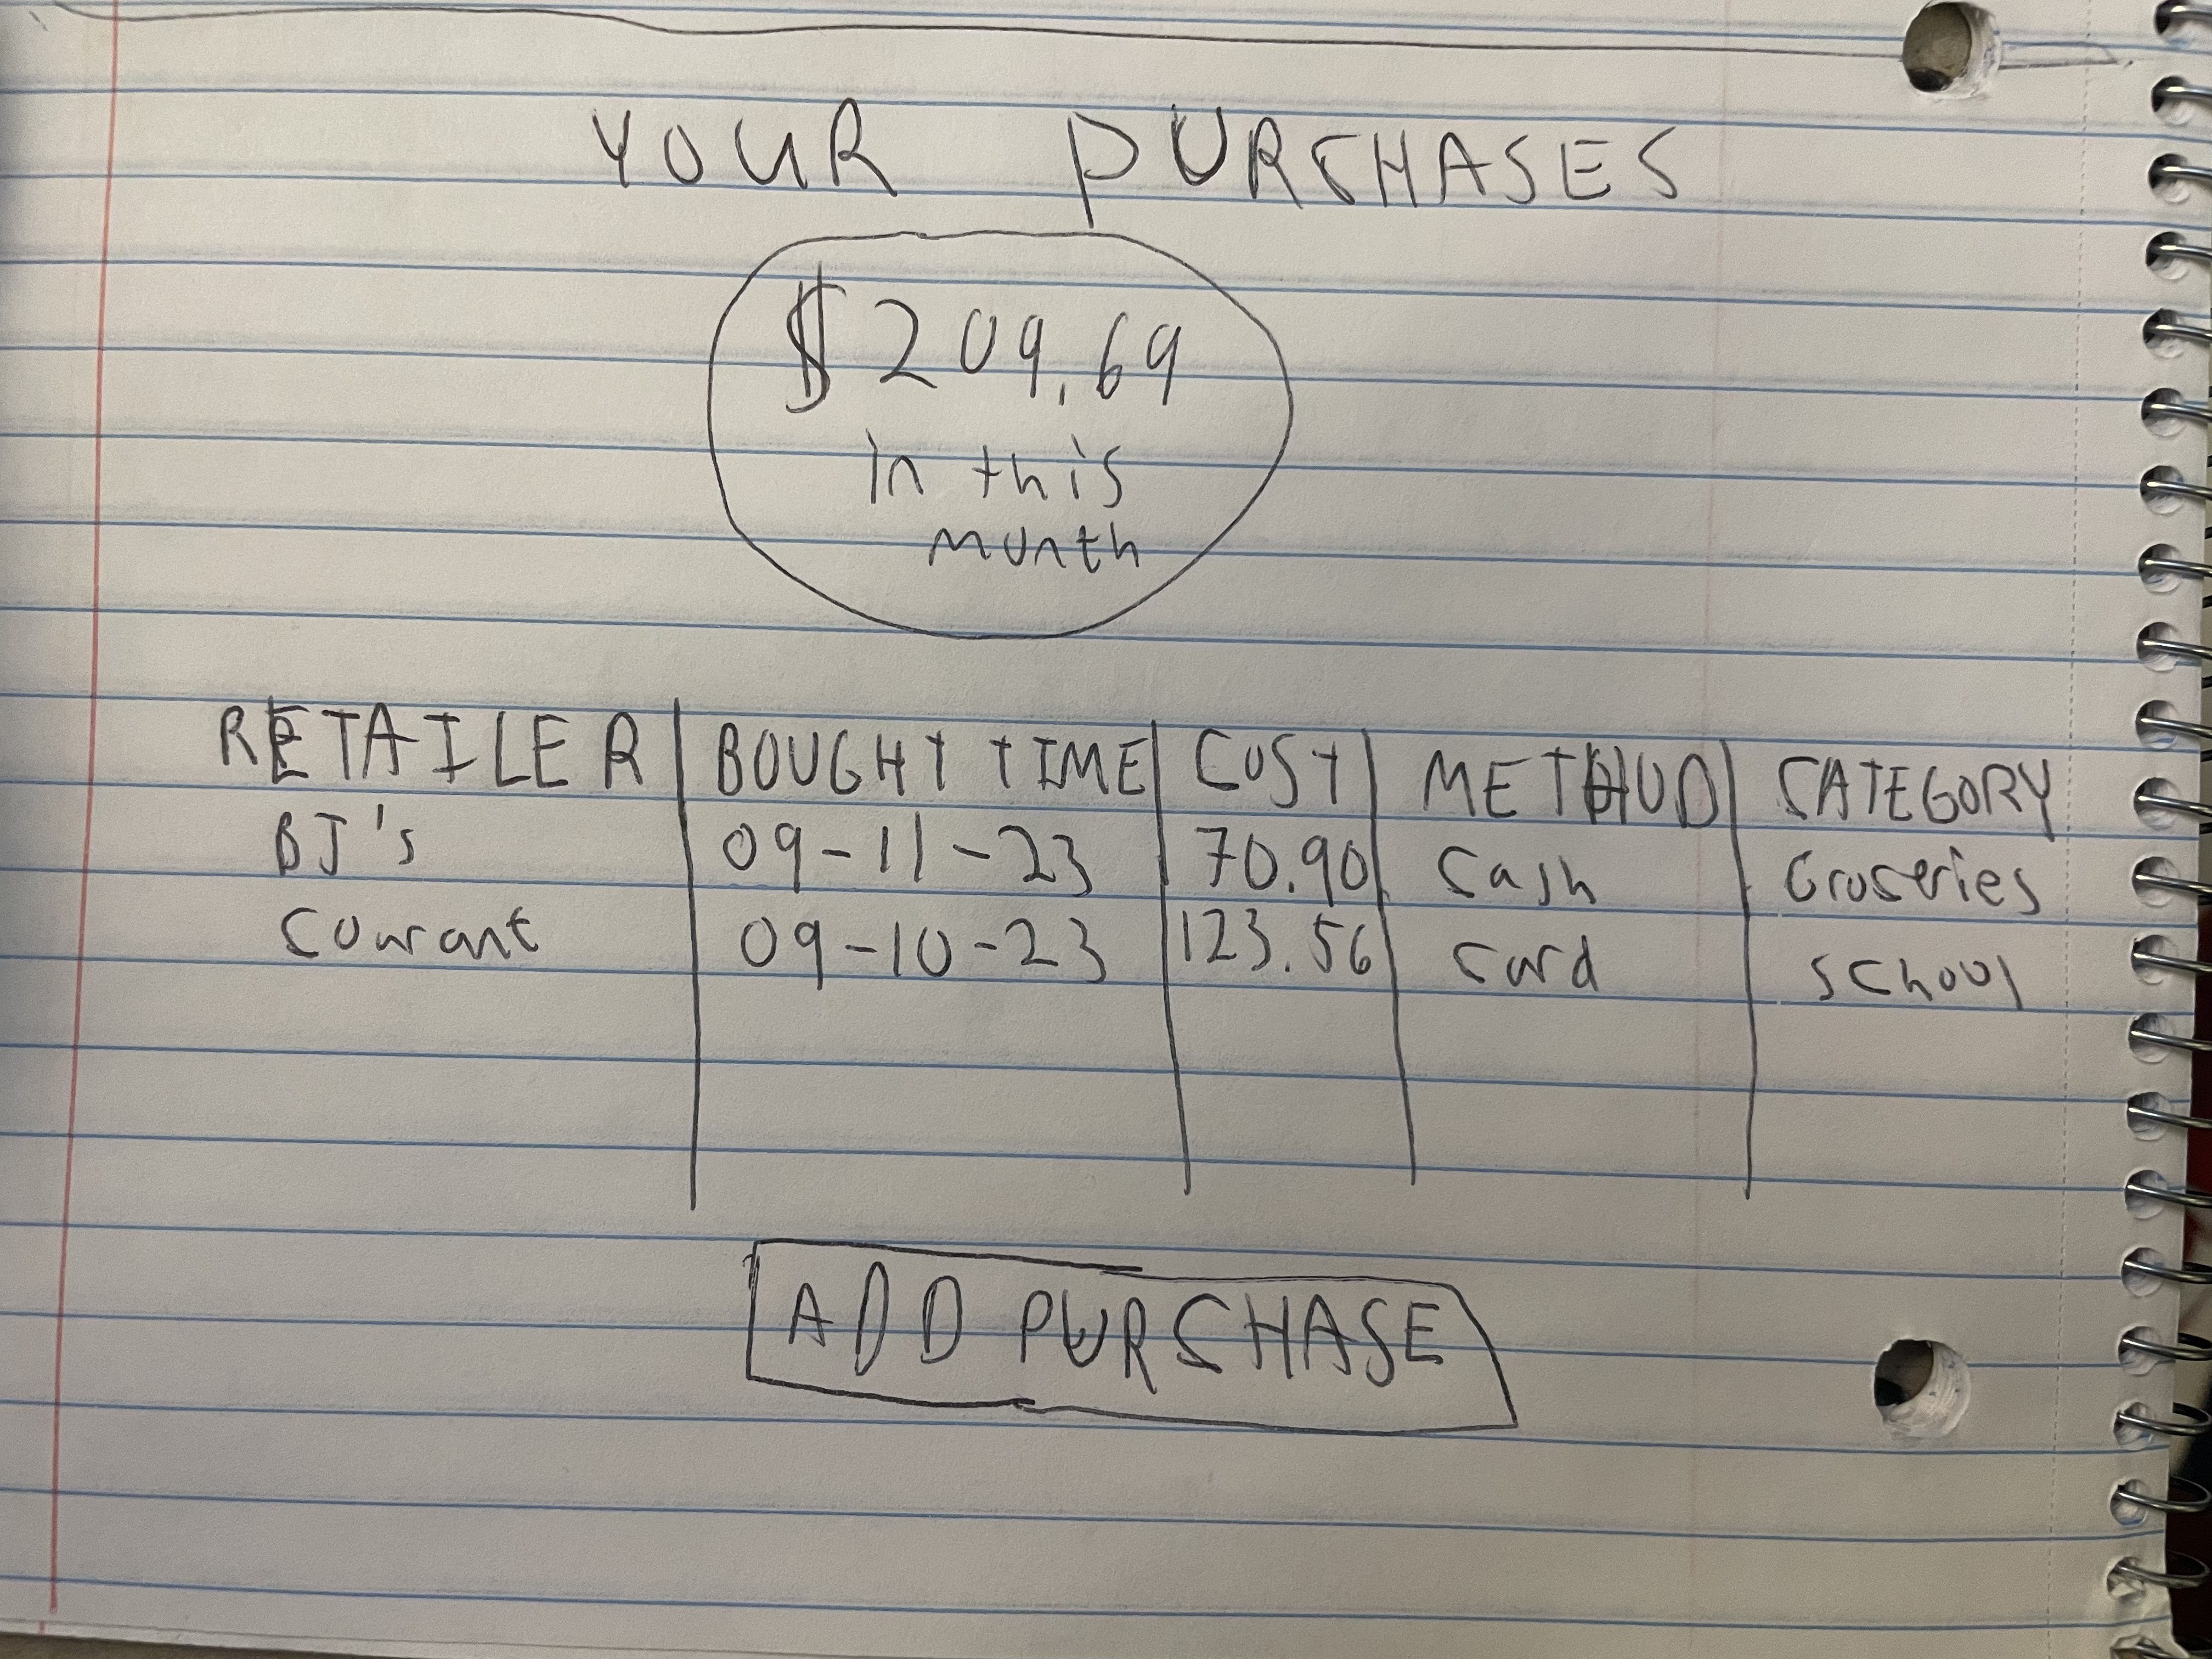 YOUR PURCHASES
$209.69
in this
month
RETAILER BOUGHT TIME COST METHOD CATEGORY
BJ's 09-11-23 70.90 Cash Groceries
Courant 09-10-23 123.56 Card school
ADD PURCHASE